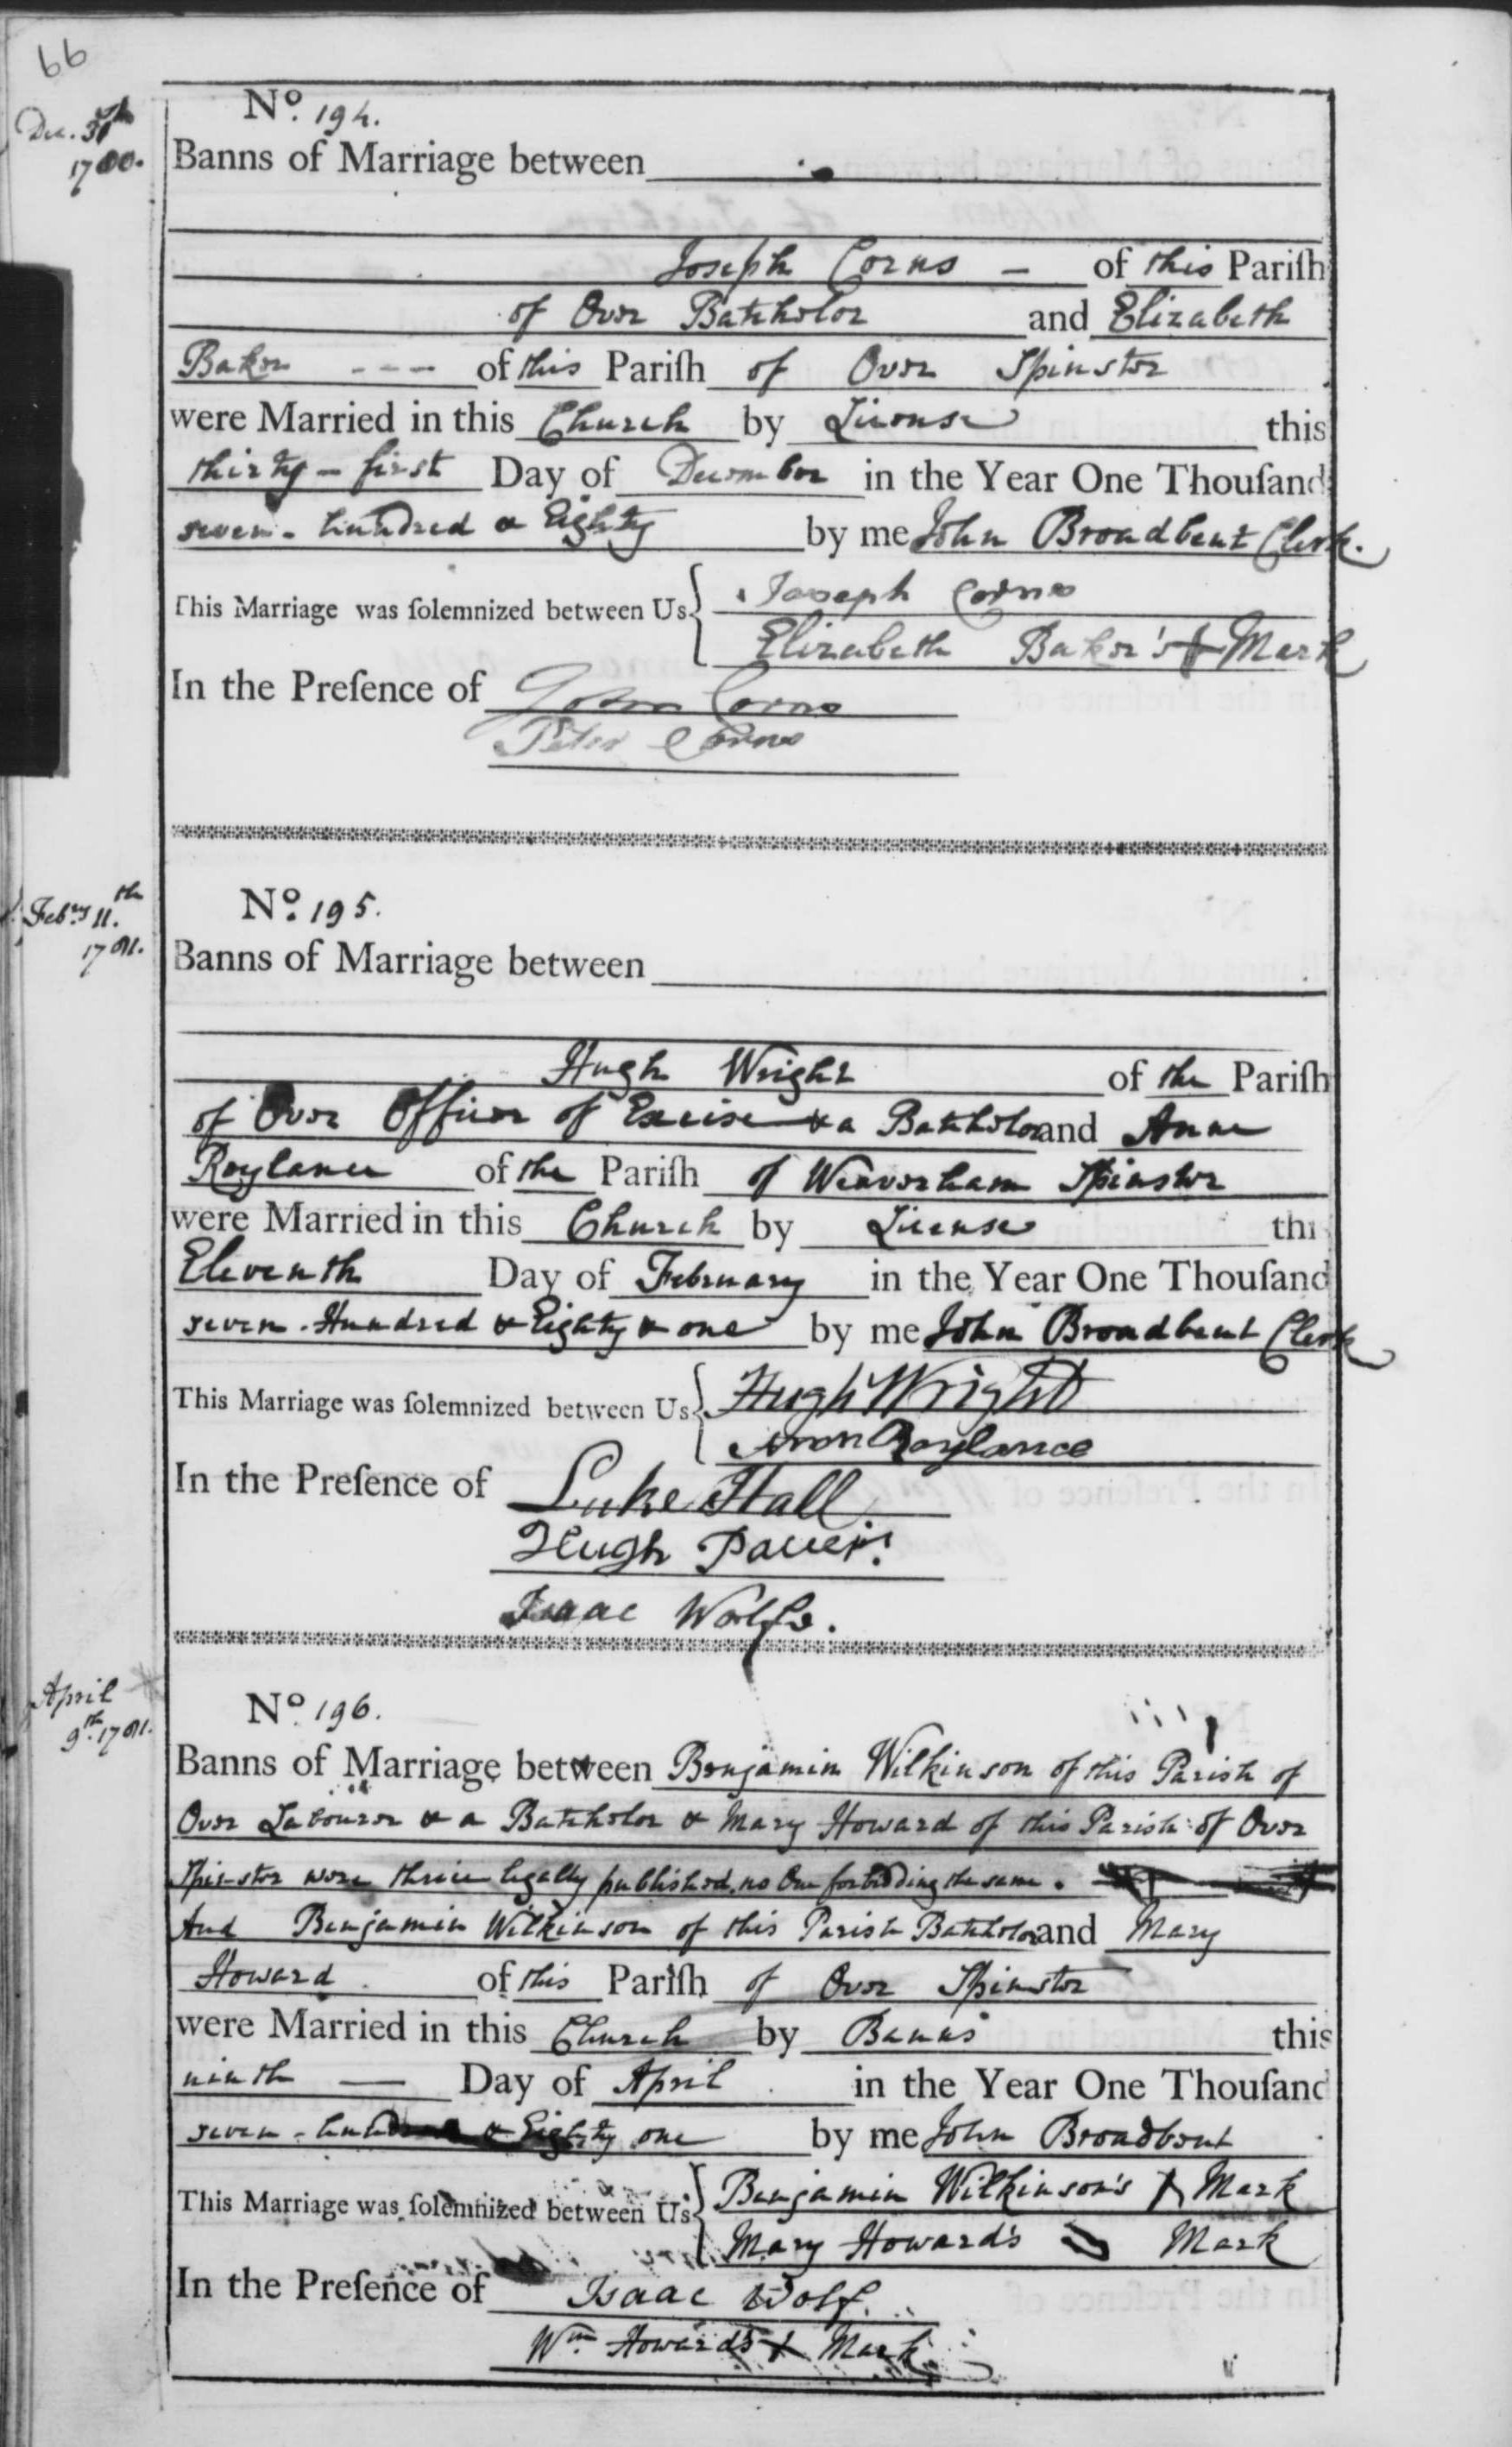 66
Dec. 31st
1780.
No. 194.
Banns of Marriage between
Joseph Corns — of this Pariſh
of Over Batchelor and Elizabeth
Baker --- of this Pariſh of Over Spinster
were Married in this Church by License this
thirty-first Day of December in the Year One Thouſand
seven-hundred & Eighty by me John Broadbent Clerk.
This Marriage was ſolemnized between Us { Joseph Corns
Elizabeth Baker's + Mark
In the Preſence of John Corns
Peter Corns
Febry 11.th
1781.
No. 195.
Banns of Marriage between
Hugh Wright of the Pariſh
of Over Officer of Excise & a Batchelor and Anne
Roylance of the Pariſh of Weaverham Spinster
were Married in this Church by License thi
Eleventh Day of February in the Year One Thouſand
seven-Hundred & Eighty & one by me John Broadbent Clerk
This Marriage was ſolemnized between Us { Hugh Wright
Ann Roylance
In the Preſence of Luke Hall
Hugh
Isaac Wolfe.
April
9.th 1781.
No. 196.
Banns of Marriage between Benjamin Wilkinson of this Parish of
Over Labourer & a Batchelor & Mary Howard of this Parish of Over
Spinster were thrice legally published, no One forbidding the same.
And Benjamin Wilkinson of this Parish Batchelor and Mary
Howard of this Pariſh of Over Spinster
were Married in this Church by Banns this
ninth — Day of April in the Year One Thouſand
seven-hundred & Eighty one by me John Broadbent
This Marriage was ſolemnized between Us { Benjamin Wilkinson's + Mark
Mary Howard's Mark
In the Preſence of Isaac Wolf.
Wm Howard's + Mark